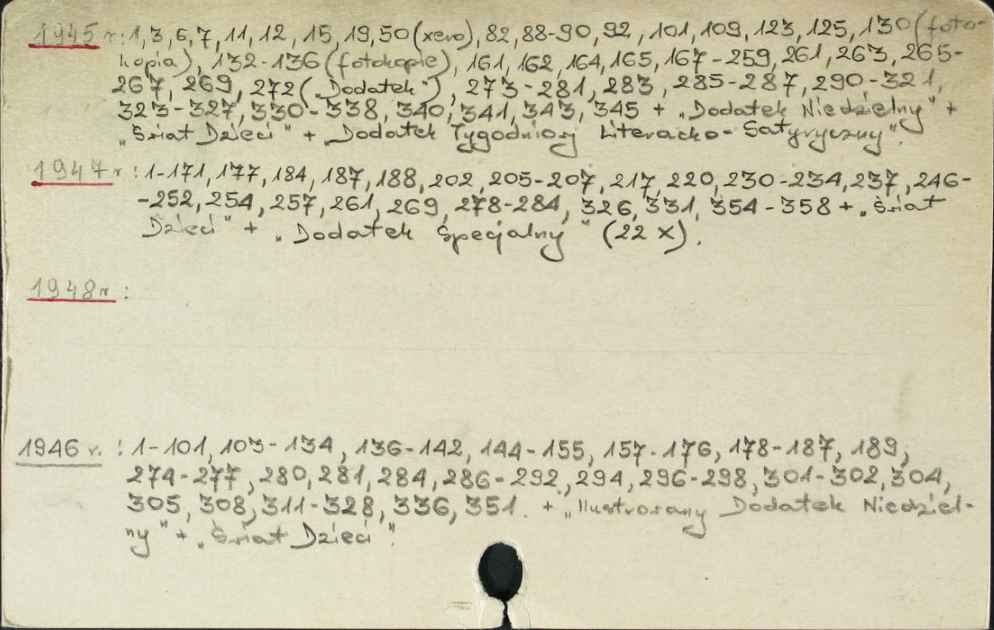 1945 r: 1, 3, 6, 7, 11, 12, 15, 19, 50 (xero), 82, 88-90, 92, 101, 109, 123, 125, 130 (foto-
kopia), 132-136 (fotokopie), 161, 162, 164, 165, 167-259, 261, 263, 265-
267, 269, 272 („Dodatek"), 273-281, 283, 285-287, 290-321,
323-327, 330-338, 340, 341, 343, 345 + „Dodatek Niedzielny" +
„Świat Dzieci" + Dodatek Tygodniowy Literacko-Satyryczny".
1947 r: 1-171, 177, 184, 187, 188, 202, 205-207, 217, 220, 230-234, 237, 246-
-252, 254, 257, 261, 269, 278-284, 326, 331, 354-358 + „Świat
Dzieci" + „Dodatek Specjalny" (22 x).
1948 r:
1946 r. : 1-101, 103-134, 136-142, 144-155, 157-176, 178-187, 189,
274-277, 280, 281, 284, 286-292, 294, 296-298, 301-302, 304,
305, 308, 311-328, 336, 351. + „Ilustrowany Dodatek Niedziel-
ny" + „Świat Dzieci".